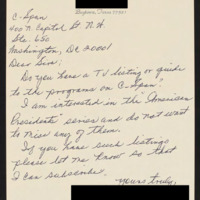 C-Span
400 N. Capitol St. N.W.
Ste. 650
Washington, DC 20001
Dear Sirs:
Do you have a TV listing or guide
to the programs on C-Span?
I am interested in the "American
Presidents" series and do not want
to miss any of them.
If you have such listings
please let me know so that
I can subscribe.
Yours truly,